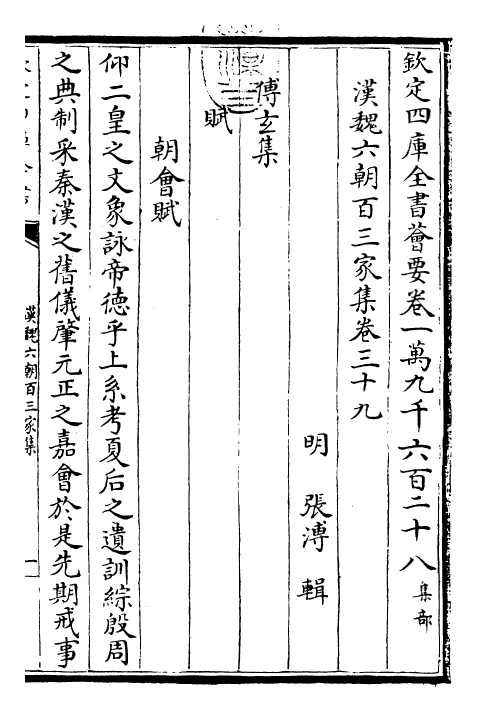 欽定四庫全書薈要卷一萬九千六百二十八 集部
漢魏六朝百三家集卷三十九
明 張溥 輯
傅玄集
賦
朝會賦
仰二皇之文象詠帝德乎上系考夏后之遺訓綜殷周
之典制采秦漢之舊儀肇元正之嘉會於是先期戒事
漢魏六朝百三家集
一